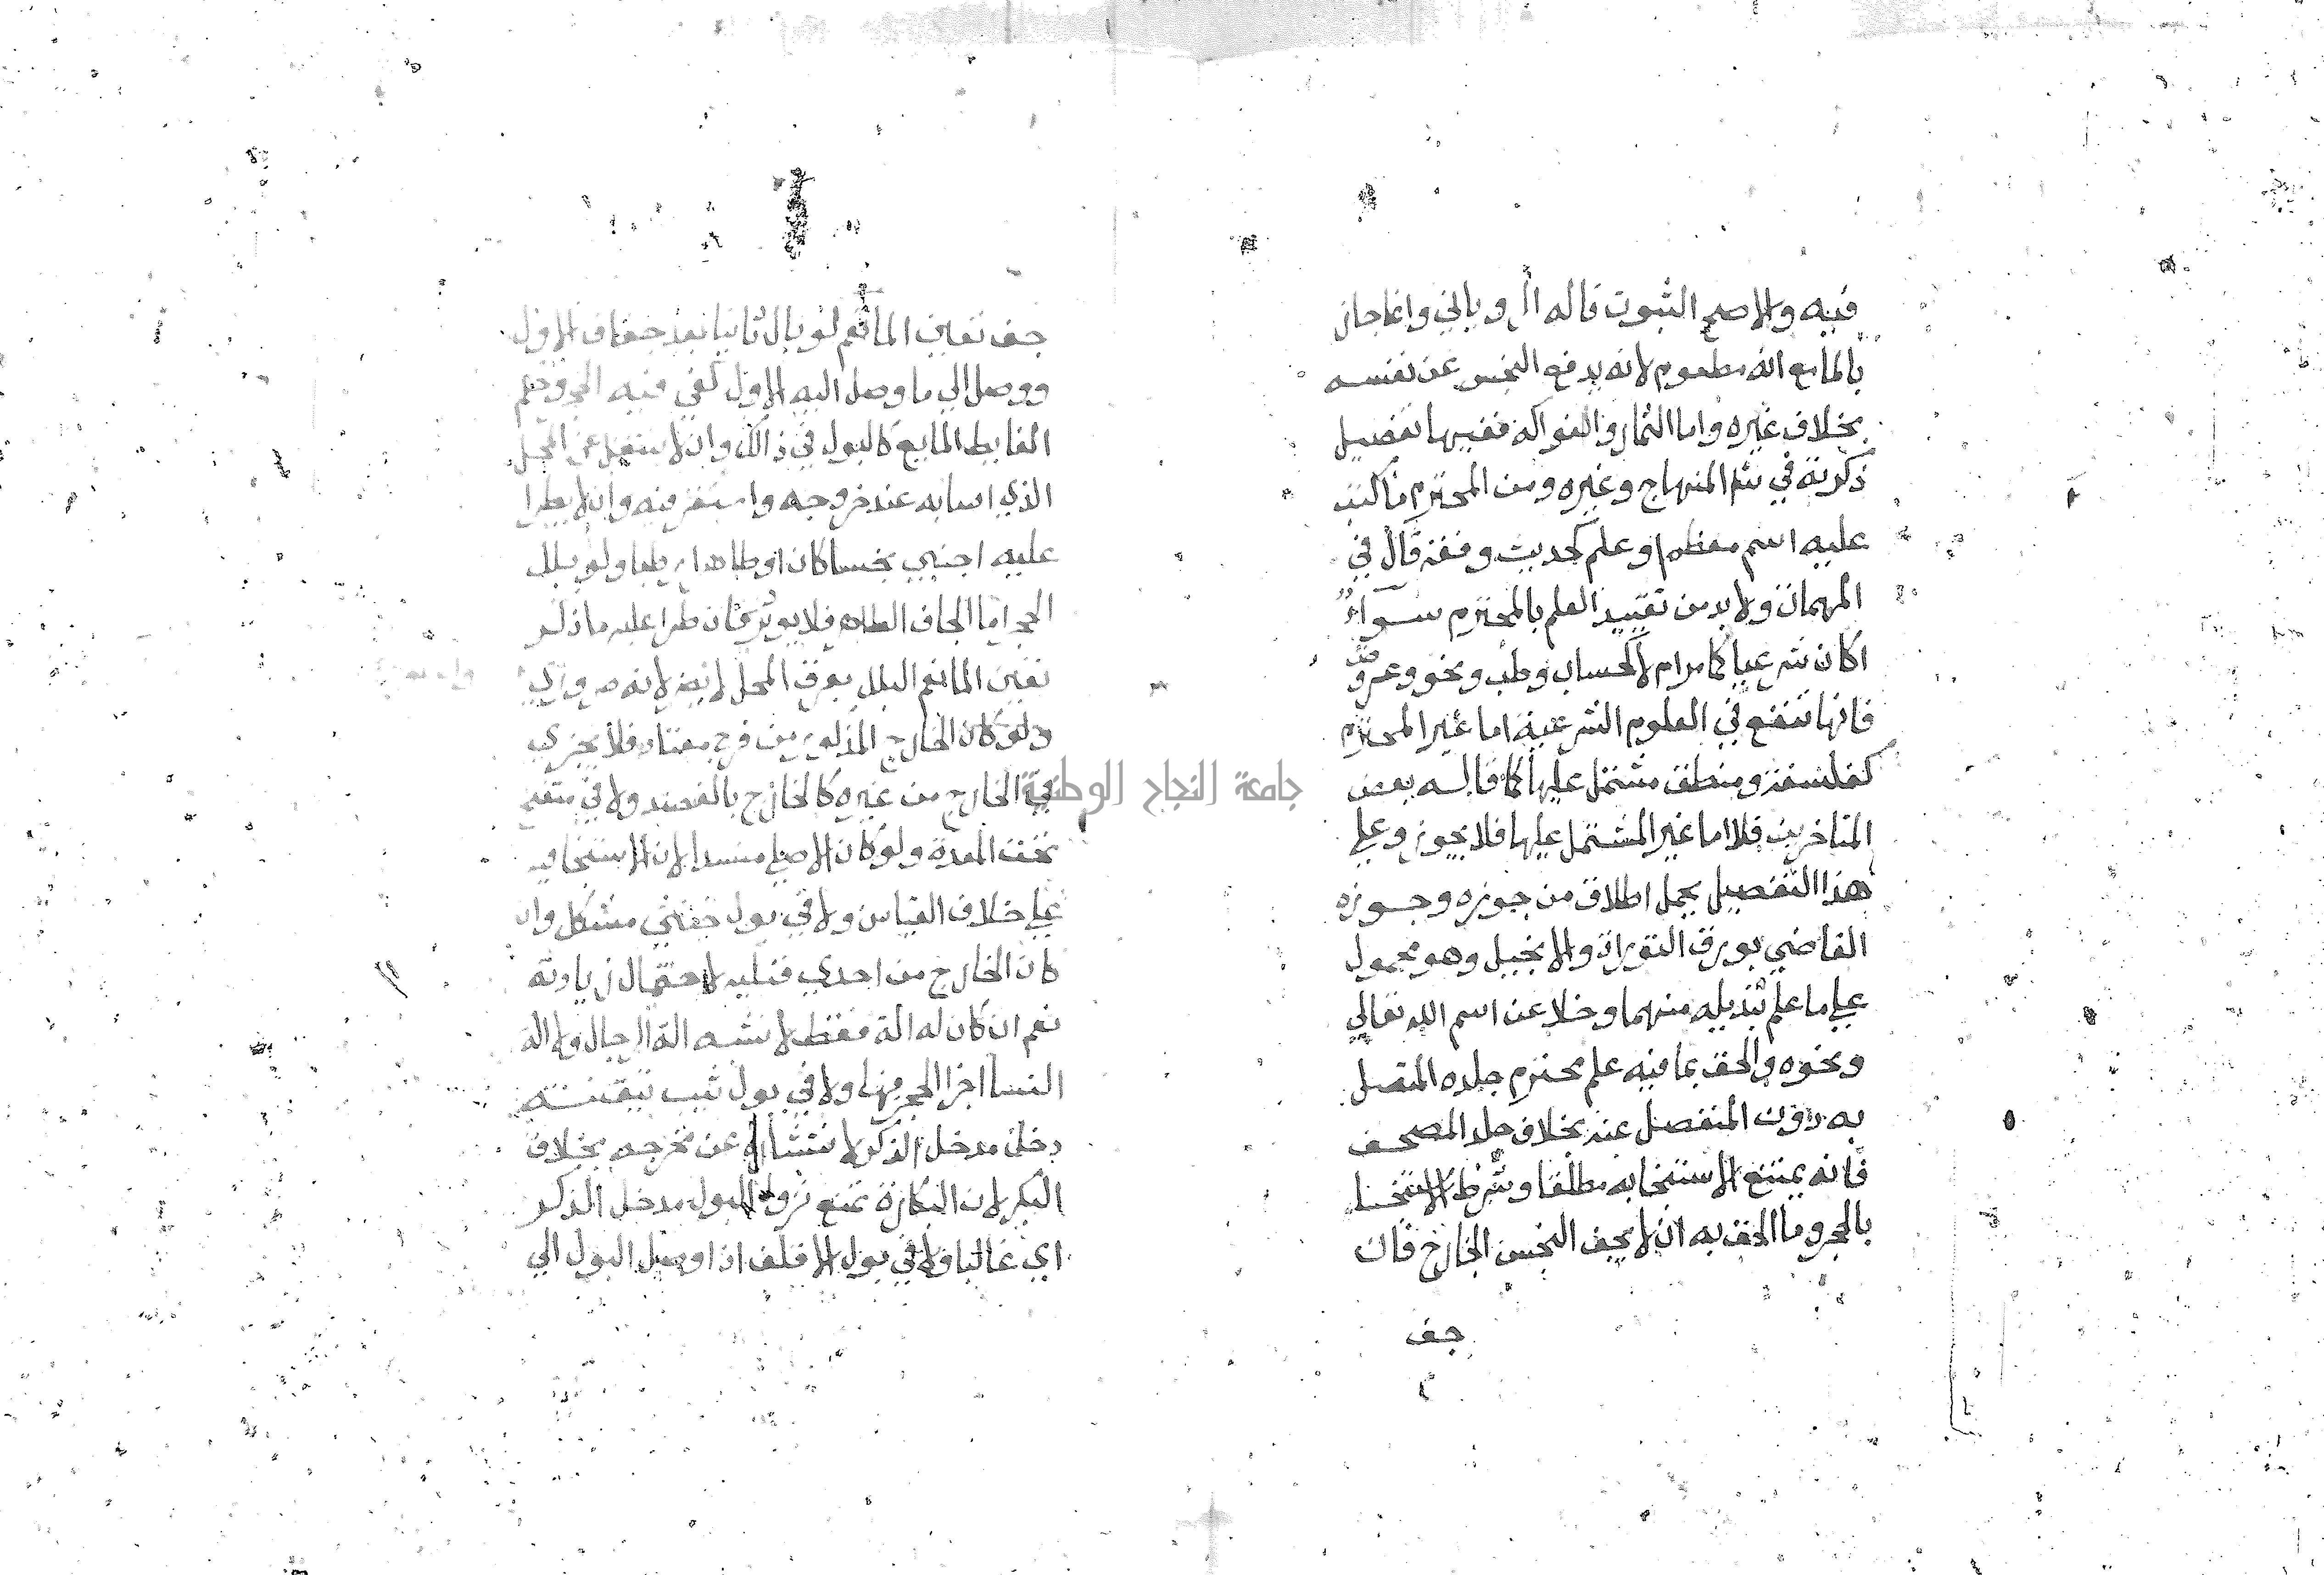 فيه والاصح الثبوت قاله الروياني وانما جاز
بالمايع انه مطعوم لانه يدفع النجس عن نفسه
بخلاف غيره واما الثمار والفواكه ففيها تفصيل
ذكرته في شرح المنهاج وغيره ومن المحترم ما كتب
عليه اسم معظم او علم كحديث وفقه قال في
المهمات ولا بد من تقييد العلم بالمحترم سواء
اكان شرعيا كما مر ام لا كحساب وطب ونحو وعروض
فانها تنفع في العلوم الشرعية اما غير المحترم
كفلسفة ومنطق مشتمل عليها كما قاله بعض
المتاخرين فلا اما غير المشتمل عليها فلا يجوز وعلي
هذا التفصيل يحمل اطلاق من جوزه وجوزه
القاضي بورق التوراة والانجيل وهو محمول
علي ما علم تبديله منهما وخلا عن اسم الله تعالي
ونحوه والحق بما فيه علم محترم جلده المتصل
به دون المنفصل عنه بخلاف جلد المصحف
فانه يمتنع الاستنجا به مطلقا وشرط الاستنجا
بالحجر وما الحق به ان لا يجف النجس الخارج فان
جف
جف تعين الماء نعم لو بال ثانيا بعد جفاف الاول
ووصل الي ما وصل اليه الاول كفي فيه الحجر وحكم
الغايط المايع كالبول في ذالك وان لا ينتقل عن المحل
الذي اصابه عند خروجه واستقر فيه وان لا يطرا
عليه اجنبي نجسا كان او طاهرا رطبا ولو ببلل
الحجر اما الجاف الطاهر فلا يوثر فان طرا عليه ما ذكر
تعين الماء نعم البلل بعرق المحل لا يضر لانه ضروري
ولو كان الخارج المذكور من فرج معتاد فلا يجزي
في الخارج من غيره كالخارج بالفصد ولا في منفتح
تحت المعدة ولو كان الاصلي منسدا لان الاستنجا به
علي خلاف القياس ولا في بول خنثي مشكل وان
كان الخارج من احدي قبليه لاحتمال زيادته
نعم ان كان له الة فقط لا تشبه الة الرجال ولا الة
النسا اجزا الحجر فيها ولا في بول ثيب تيقنته
دخل مدخل الذكر لانتشاره عن مخرجه بخلاف
البكر لان البكارة تمنع نزول البول مدخل الذكر
اي غالبا ولا في بول الاقلف اذا وصل البول الي
جامعة النجاح الوطنية